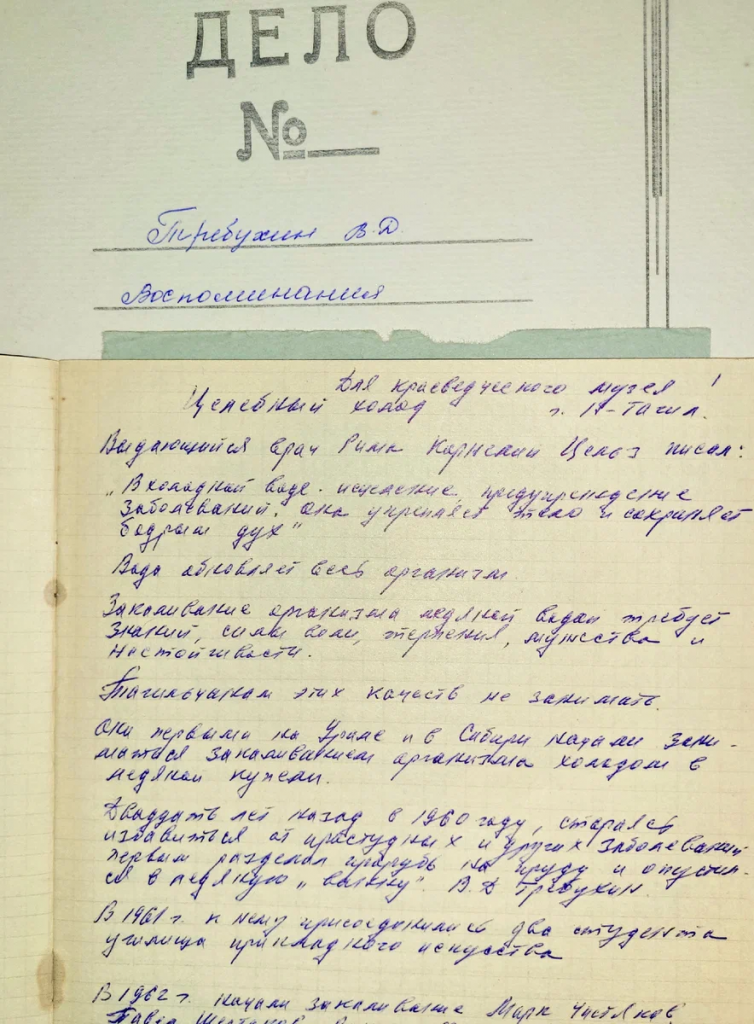 ДЕЛО
№
Требухин В.Д.
Воспоминания
Для краеведческого музея !
Целебный холод г. Н-Тагил.
Выдающийся врач Рима Корнелий Цельз писал:
„В холодной воде - исцеление, предупреждение
заболеваний. она укрепляет тело и сохраняет
бодрым дух"
Вода обновляет весь организм.
Закаливание организма ледяной водой требует
знаний, силы воли, терпения, мужества и
настойчивости.
Тагильчанам этих качеств не занимать.
Они первыми на Урале и в Сибири начали зани-
маться закаливанием организма холодом в
ледяной купели.
Двадцать лет назад в 1960 году, стараясь
избавиться от простудных и других заболеваний
первым разделал прорубь на пруду и опустил-
ся в ледяную „ванну". В.Д Требухин.
В 1961 г. к нему присоединились два студента
училища прикладного искусства
В 1962 г. начали закаливание Марк Чистяков